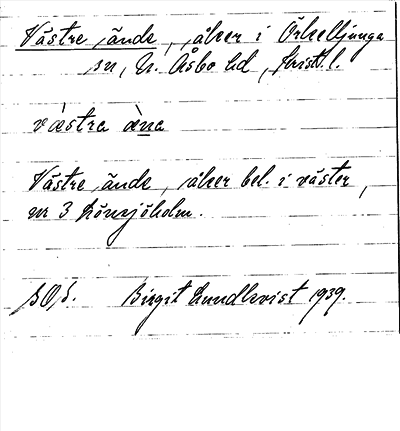 Västre ände, åker i Örkelljunga
sn, N. Åsbo hd, Krist. l.
væ̀stra æ̀na
Västre ände, åker bel. i väster,
nr 3 Lönsjöholm.
SOÖ. Birgit Lundkvist 1939.